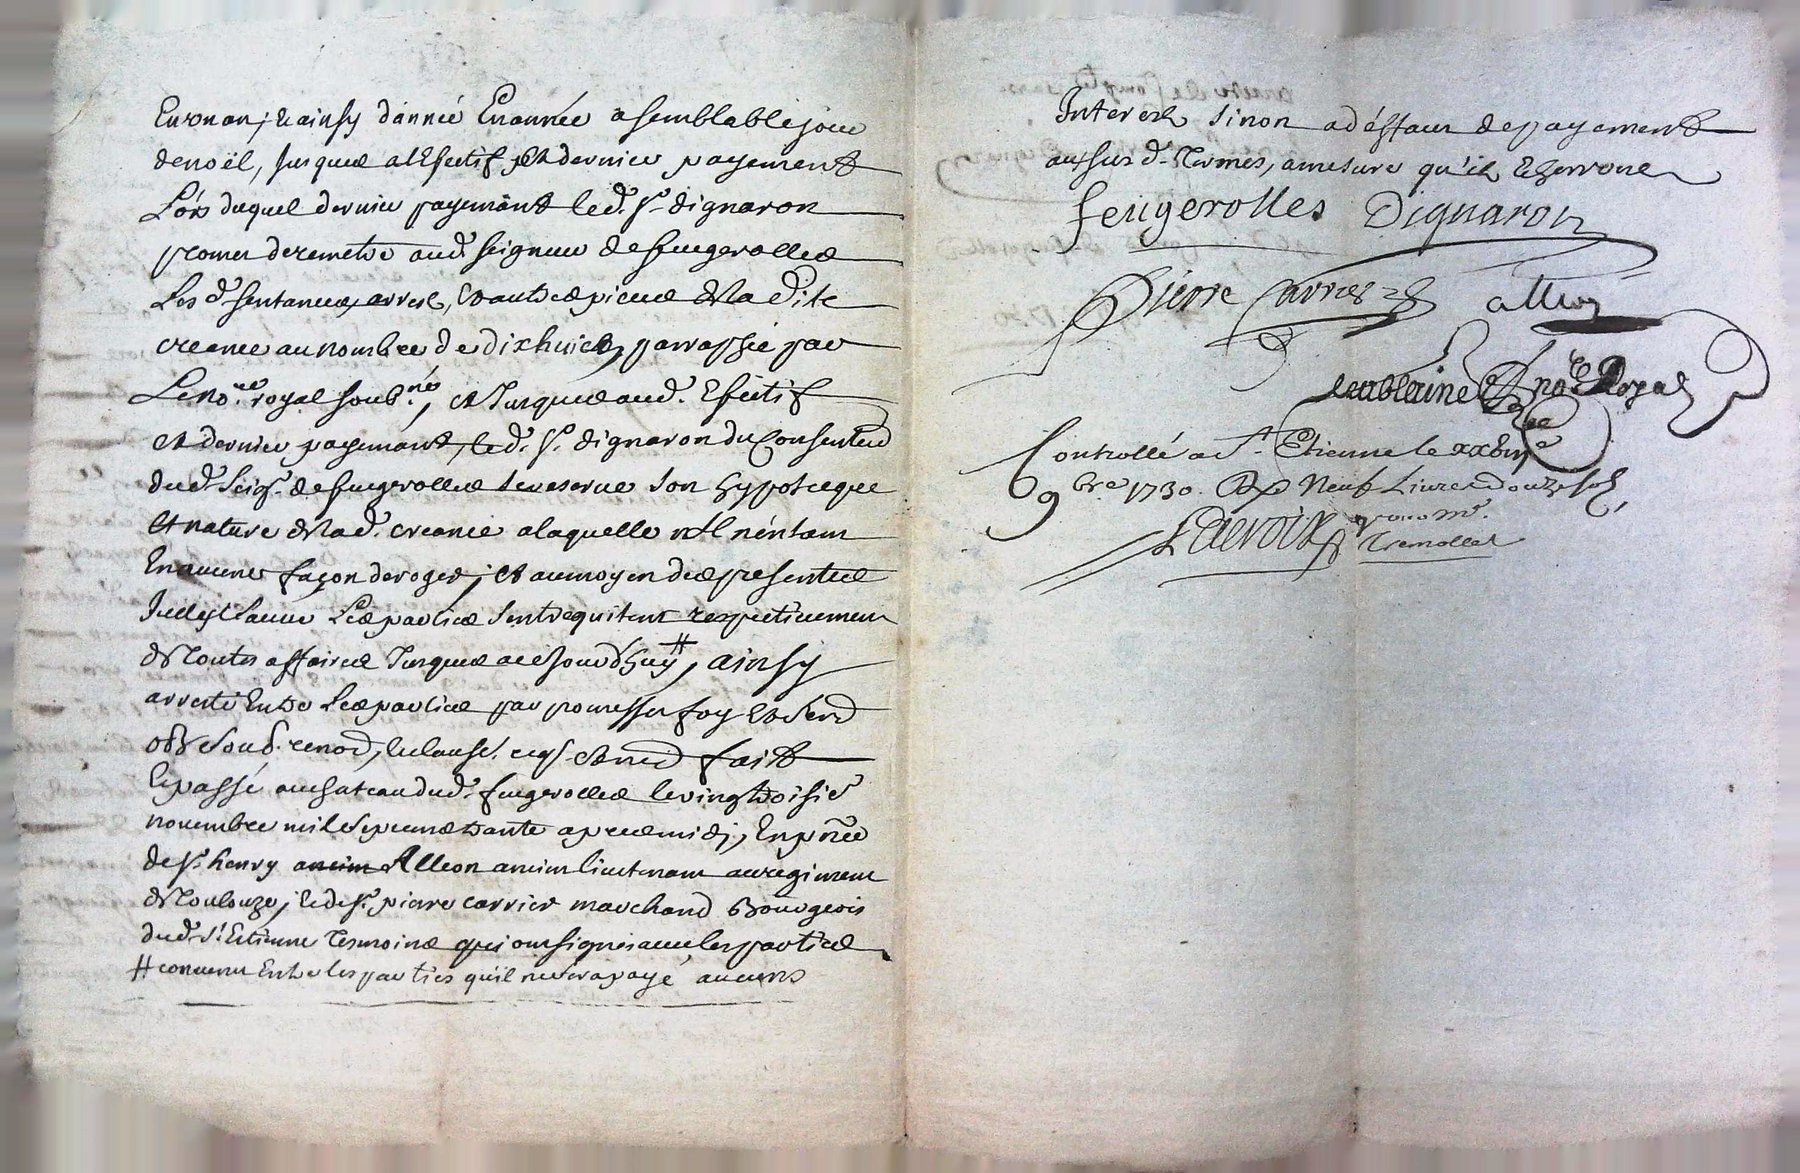 En un an, et ainsy d'année En année a semblable jour
de noël, Jusques a l'Efectif et dernier payement
Lors duquel dernier payemant led. Sr. dignaron
promet de remettre aud. seigneur de feugerolles
Les d. sentances, arrest, et autres pieces de la dite
creance au nombre de dixhuict, parraphée par
Le no.re royal soub.né, et Jusques aud. Efectif
et dernier payemant, led. Sr. dignaron du Consentem.
dud. Seigr. de feugerolles se reserve son hypoteque
et nature de lad. creance a laquelle il n'entant
En aucune façon deroger; et au moyen des presentes
Icelles parties s'entrequitent respectivement
de Toutes affaires Jusques a ce Jourd'huy #, ainsy
arresté Entre Les parties par promesses foy et serm.
obl. soub. renon. clause. fait
Et passé au chateau dud. feugerolles le vingt troisie.
novembre mil sept cens trante apres midi, En pñce
de Sr. henry Alleon ancien lieutenant au regiment
de Toulouze, et de Sr. pierre carrier marchand Bourgeois
dud. St. Etienne Tesmoins qui ont signés avec les parties
# convenu Entre les parties qu'il ne sera payé aucuns
Interest sinon a déffaut de payement
aussus d. Termes, a mesure qu'ils Echerront
feugerolles Dignaron
Pierre Carrier alleon
no.re Royal
Controllé a St. Etienne le
9bre 1730. Neuf Livres douze sols
Lacroix pour Mr.
Tremollet